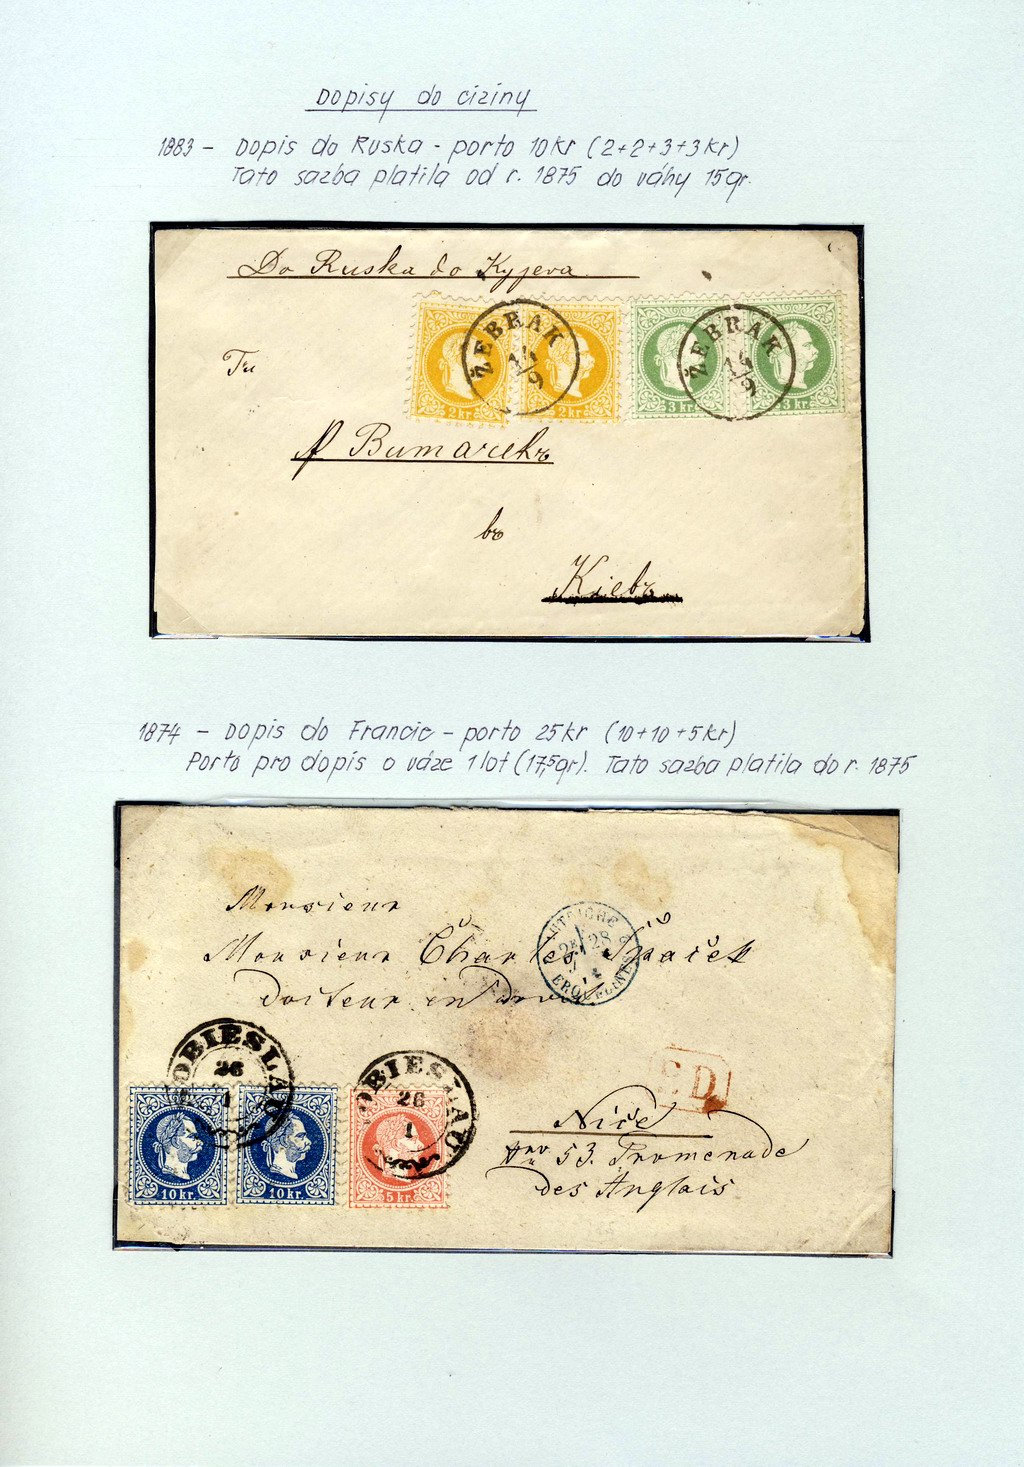 Dopisy do ciziny
1883 – Dopis do Ruska - porto 10kr (2+2+3+3kr)
Tato sazba platila od r. 1875 do váhy 15gr.
Do Ruska do Kyjeva
ŽEBRAK
14/9
ŽEBRAK
14/9
2 kr.
2 kr.
3 kr.
3 kr.
bz
Kiebz
1874 – Dopis do Francie – porto 25kr (10+10+5kr)
Porto pro dopis o váze 1 lot (17,5gr). Tato sazba platila do r. 1875
Monsieur
Monsieur Charles Špaček
docteur en droit
AUTRICHE
28
ERQUELINES
SOBIESLAU
26
1
SOBIESLAU
26
1
10 kr.
10 kr.
5 kr.
P.D.
Nice
53. Promenade
des Anglais